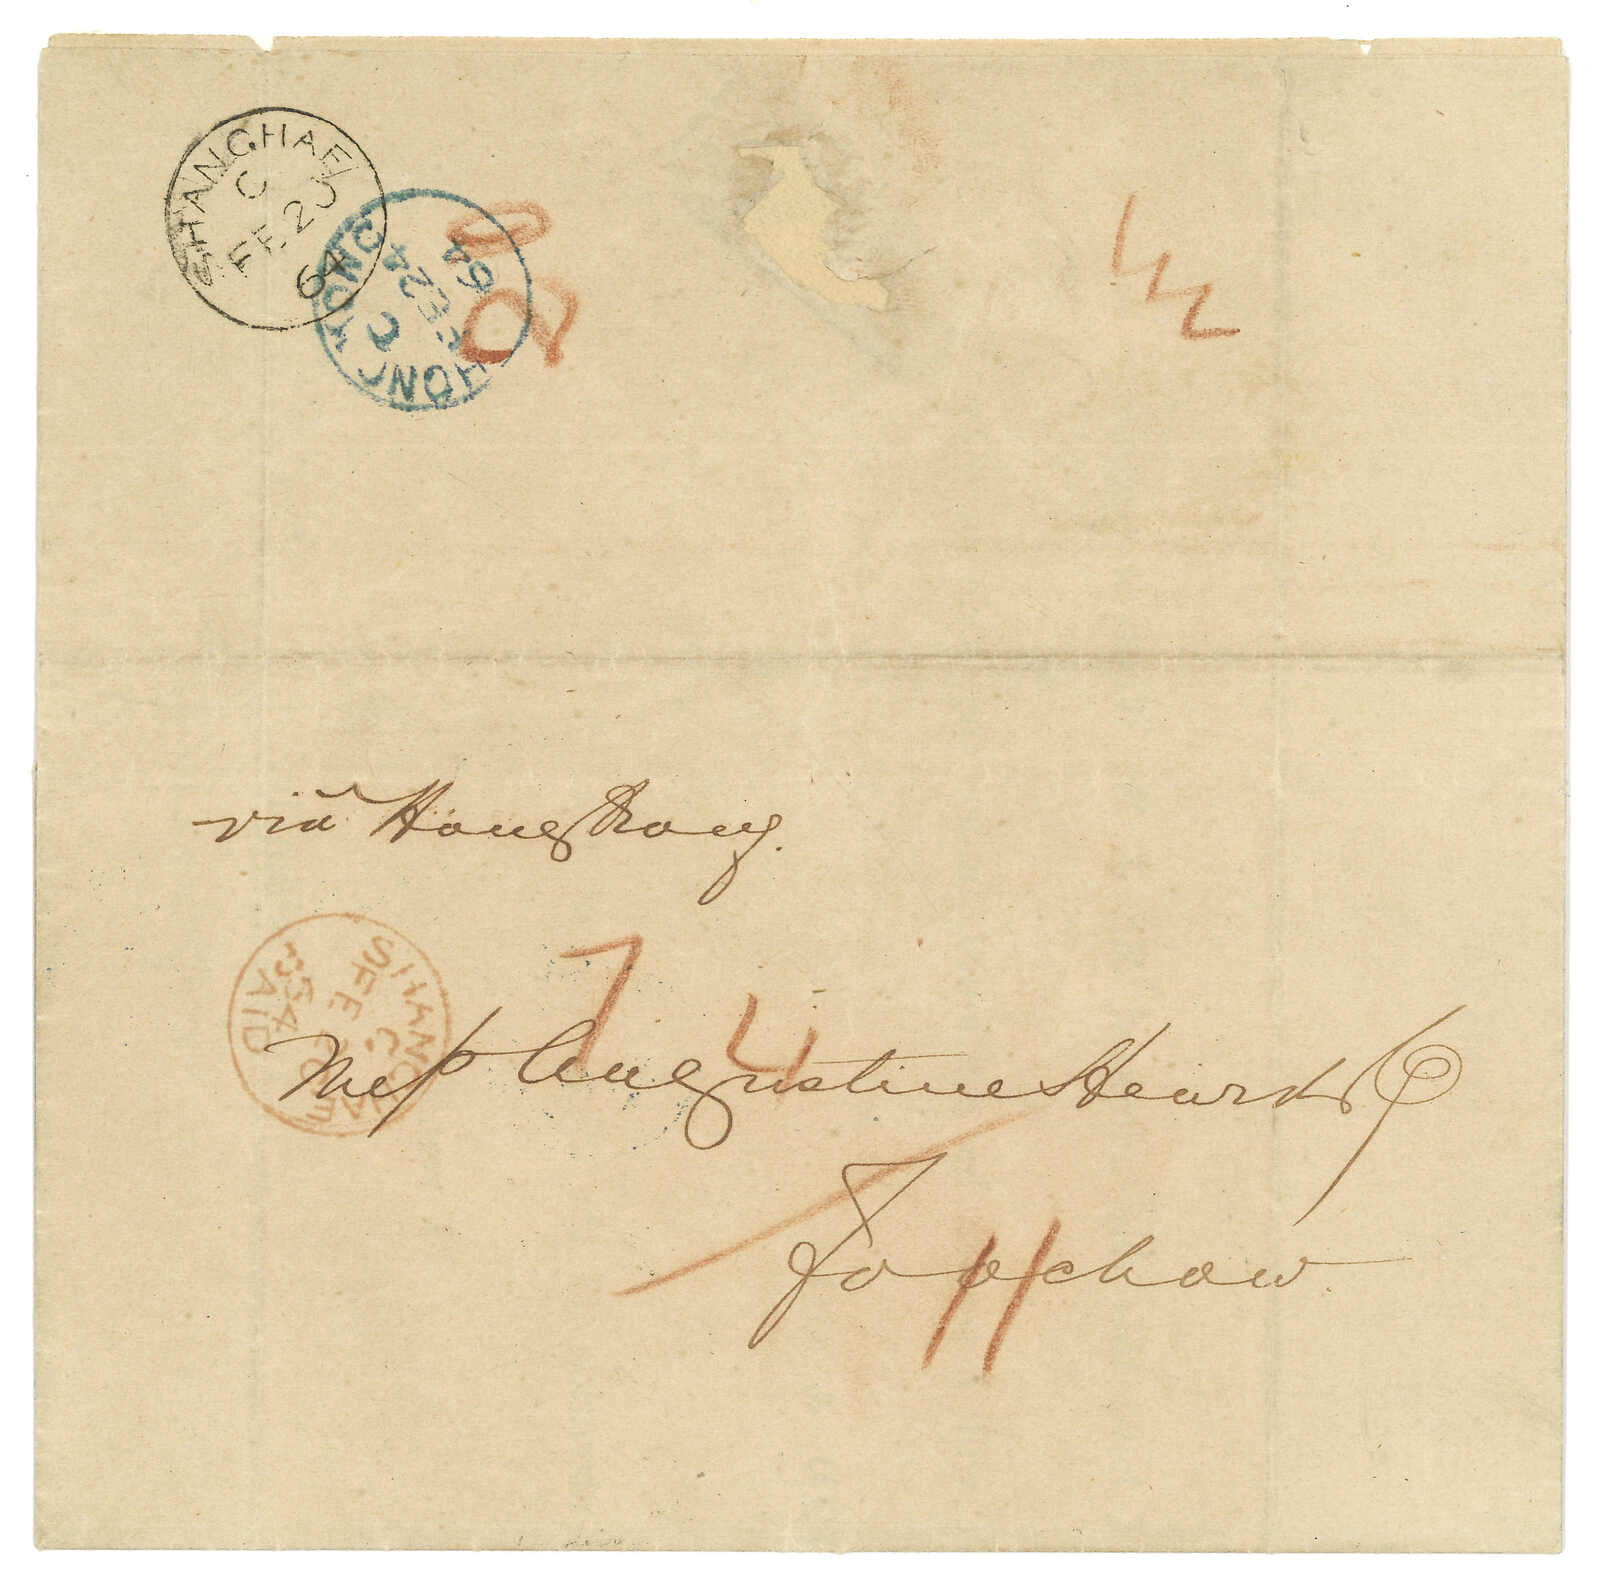 SHANGHAE
C
FE 20
64
HONG KONG
C
FE 24
64
viâ Hong Kong.
SHANGHAE
C
FE 20
64
PAID
7
4
Mess Augustine Heard & Co
Foochow